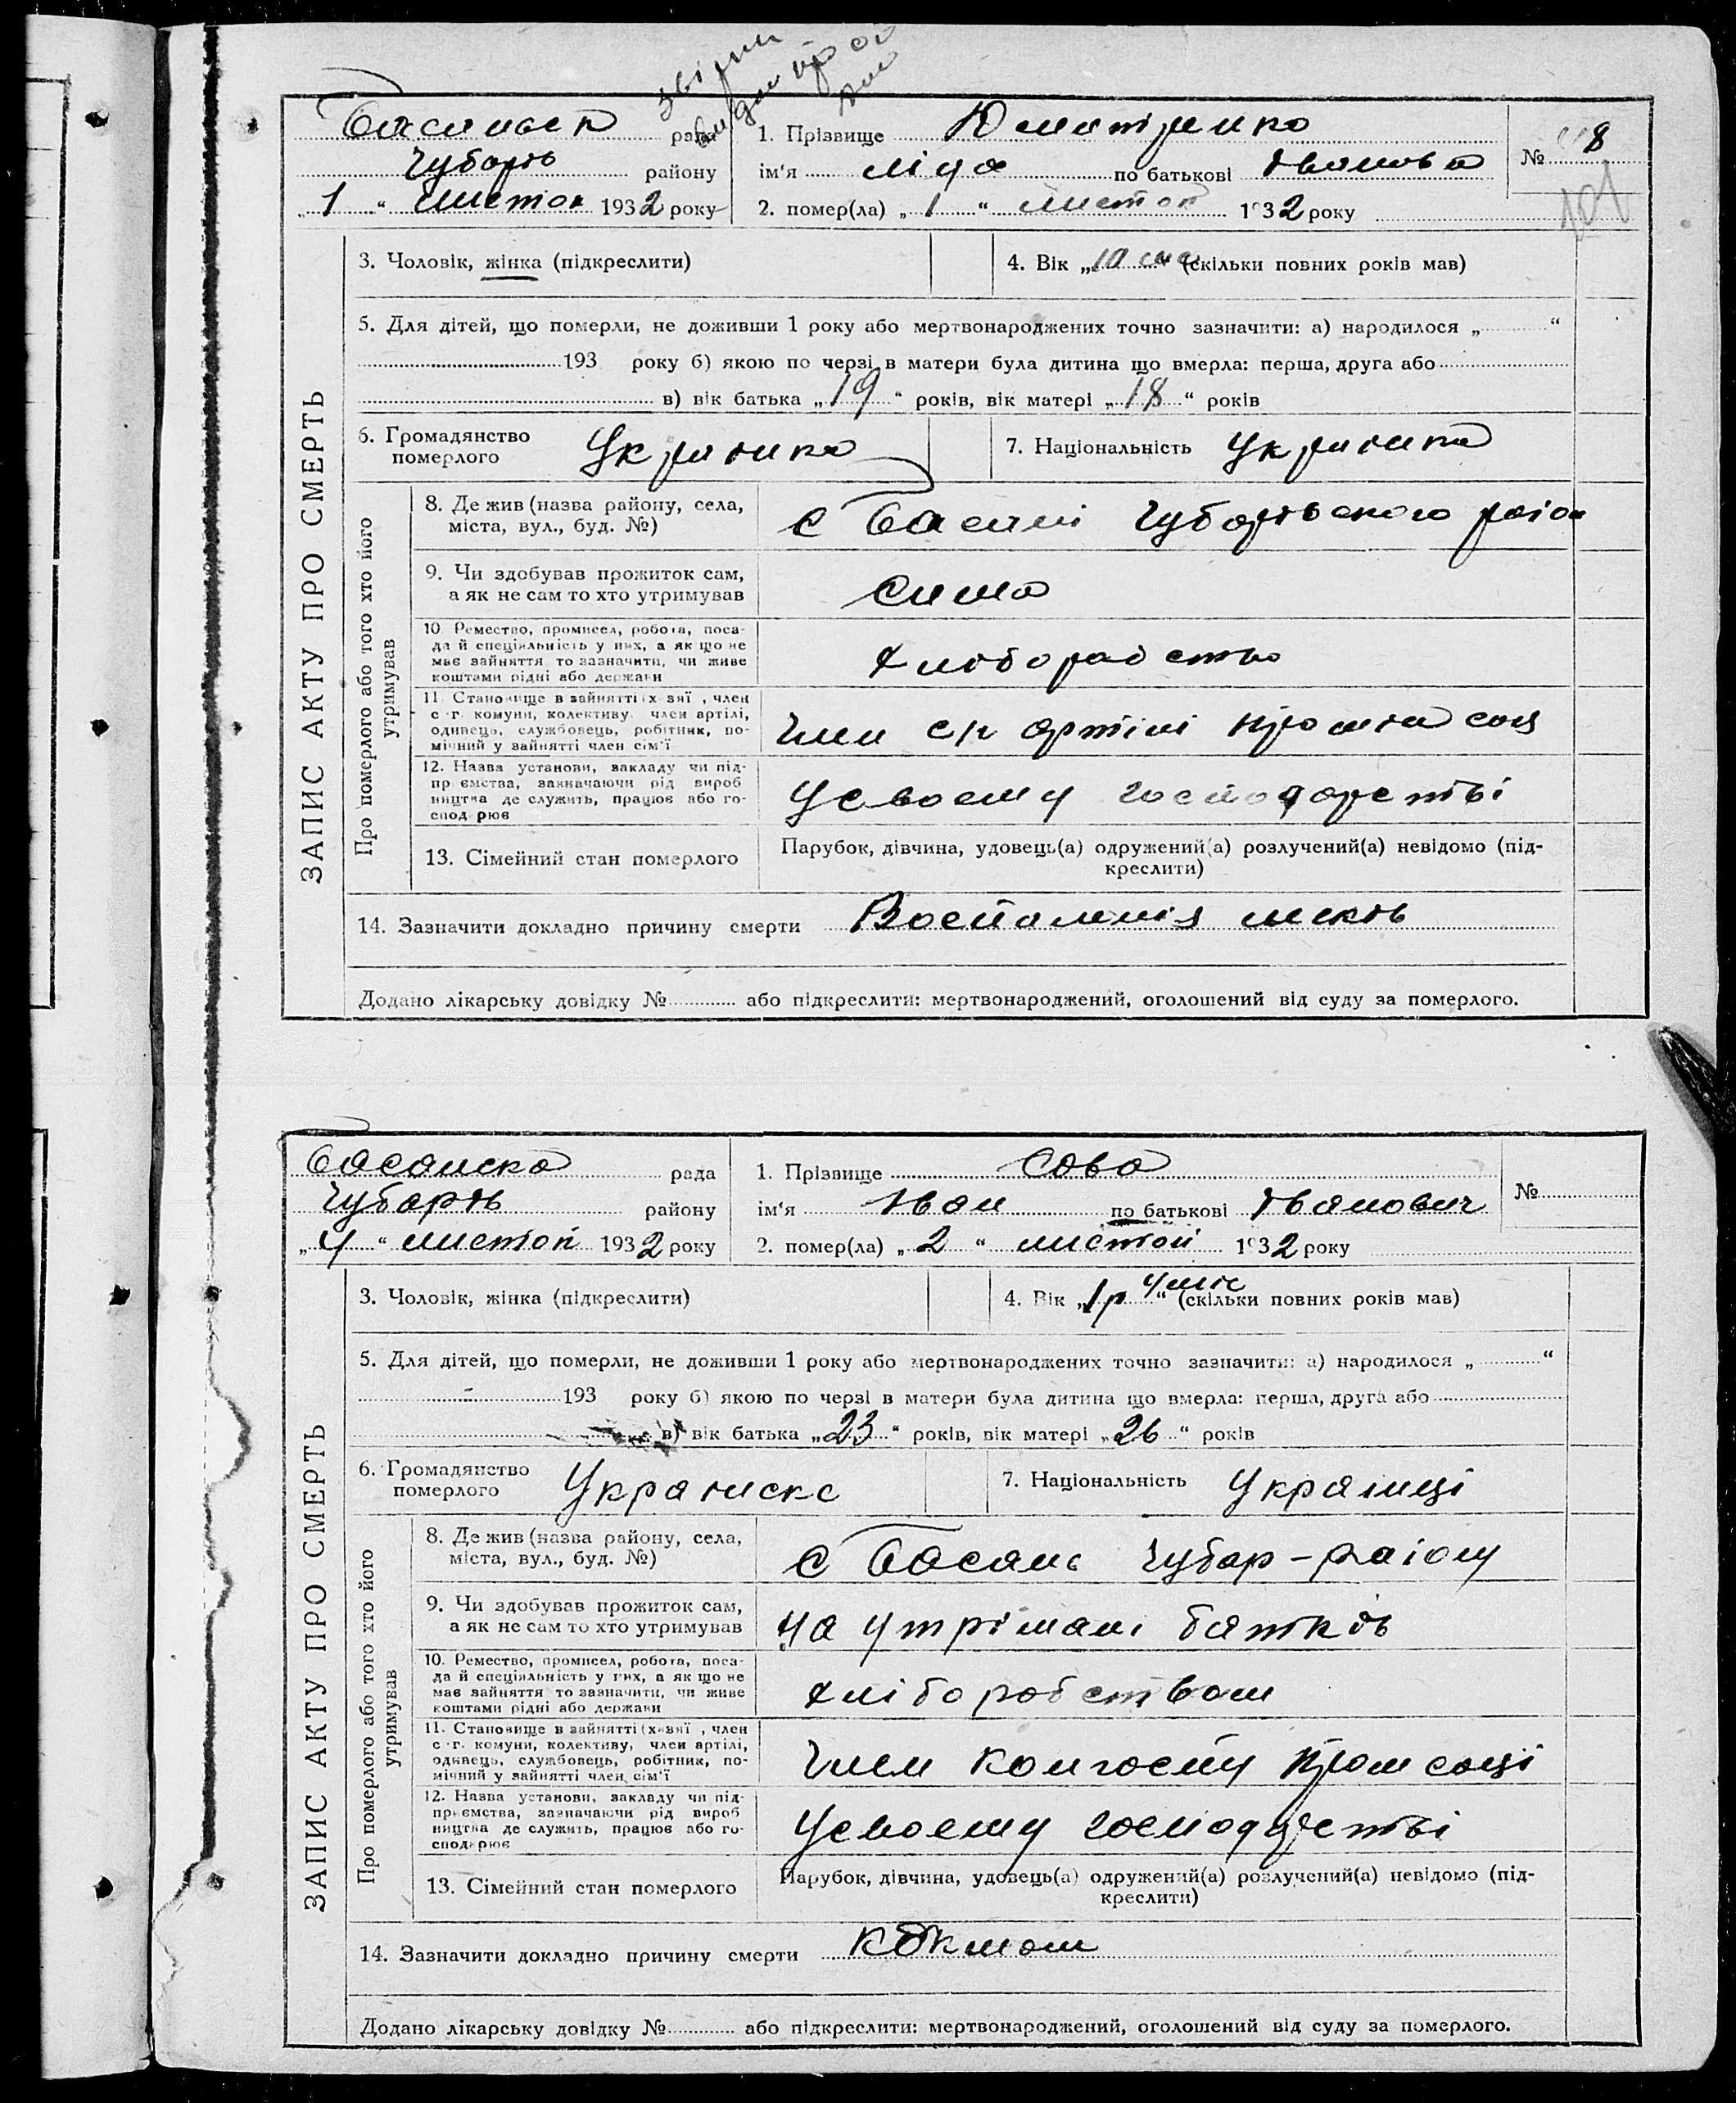 рада
1. Прізвище
№ 8
Чубарів району
ім'я Ліда по батькові Іванівна
101
„ 1 “ листоп 1932 року
2. помер(ла) „ 1 “ листоп 1932 року
3. Чоловік, жінка (підкреслити)
4. Вік „ “ (скільки повних років мав)
5. Для дітей, що померли, не доживши 1 року або мертвонароджених точно зазначити: а) народилося „ “
193 року б) якою по черзі в матери була дитина що вмерла: перша, друга або
в) вік батька „ 19 “ років, вік матері „ 18 “ років
6. Громадянство померлого Українка
7. Національність Українка
ЗАПИС АКТУ ПРО СМЕРТЬ
Про померлого або того хто його утримував
8. Де жив (назва району, села,
міста, вул., буд. №)
с Басані Чубарівського раіон
9. Чи здобував прожиток сам,
а як не сам то хто утримував
сама
10. Ремество, промисел, робота, поса-
да й спеціяльність у них, а як що не
має зайняття то зазначити, чи живе
коштами рідні або держави
11. Становище в зайнятті (х-зяї , член
с.-г. комуни, колективу, член артілі,
одинець, службовець, робітник, по-
мічний у зайнятті член сім'ї
член с/г артілі
12. Назва установи, закладу чи під-
приємства, зазначаючи рід вироб
ництва де служить, працює або го-
сподарює
Усвоему господарстві
13. Сімейний стан померлого
Парубок, дівчина, удовець(а) одружений(а) розлучений(а) невідомо (під-
креслити)
14. Зазначити докладно причину смерти Воспаленія легків
Додано лікарську довідку № або підкреслити: мертвонароджений, оголошений від суду за померлого.
Басанська рада
1. Прізвище Сова
№
Чубарів району
ім'я Іван по батькові Іванович
„ 4 “ листоп 1932 року
2. помер(ла) „ 2 “ листоп 1932 року
3. Чоловік, жінка (підкреслити)
4. Вік „ 1 р 4 міс “ (скільки повних років мав)
5. Для дітей, що померли, не доживши 1 року або мертвонароджених точно зазначити: а) народилося „ “
193 року б) якою по черзі в матери була дитина що вмерла: перша, друга або
в) вік батька „ 23 “ років, вік матері „ 26 “ років
6. Громадянство померлого Українске
7. Національність Українці
ЗАПИС АКТУ ПРО СМЕРТЬ
Про померлого або того хто його утримував
8. Де жив (назва району, села,
міста, вул., буд. №)
с Басань Чубар-раіону
9. Чи здобував прожиток сам,
а як не сам то хто утримував
на утрімані батьків
10. Ремество, промисел, робота, поса-
да й спеціяльність у них, а як що не
має зайняття то зазначити, чи живе
коштами рідні або держави
хліборобством
11. Становище в зайнятті (х-зяї , член
с.-г. комуни, колективу, член артілі,
одинець, службовець, робітник, по-
мічний у зайнятті член сім'ї
член колгоспу
12. Назва установи, закладу чи під-
приємства, зазначаючи рід вироб
ництва де служить, працює або го-
сподарює
Усвоему господарстві
13. Сімейний стан померлого
Парубок, дівчина, удовець(а) одружений(а) розлучений(а) невідомо (під-
креслити)
14. Зазначити докладно причину смерти
Додано лікарську довідку № або підкреслити: мертвонароджений, оголошений від суду за померлого.